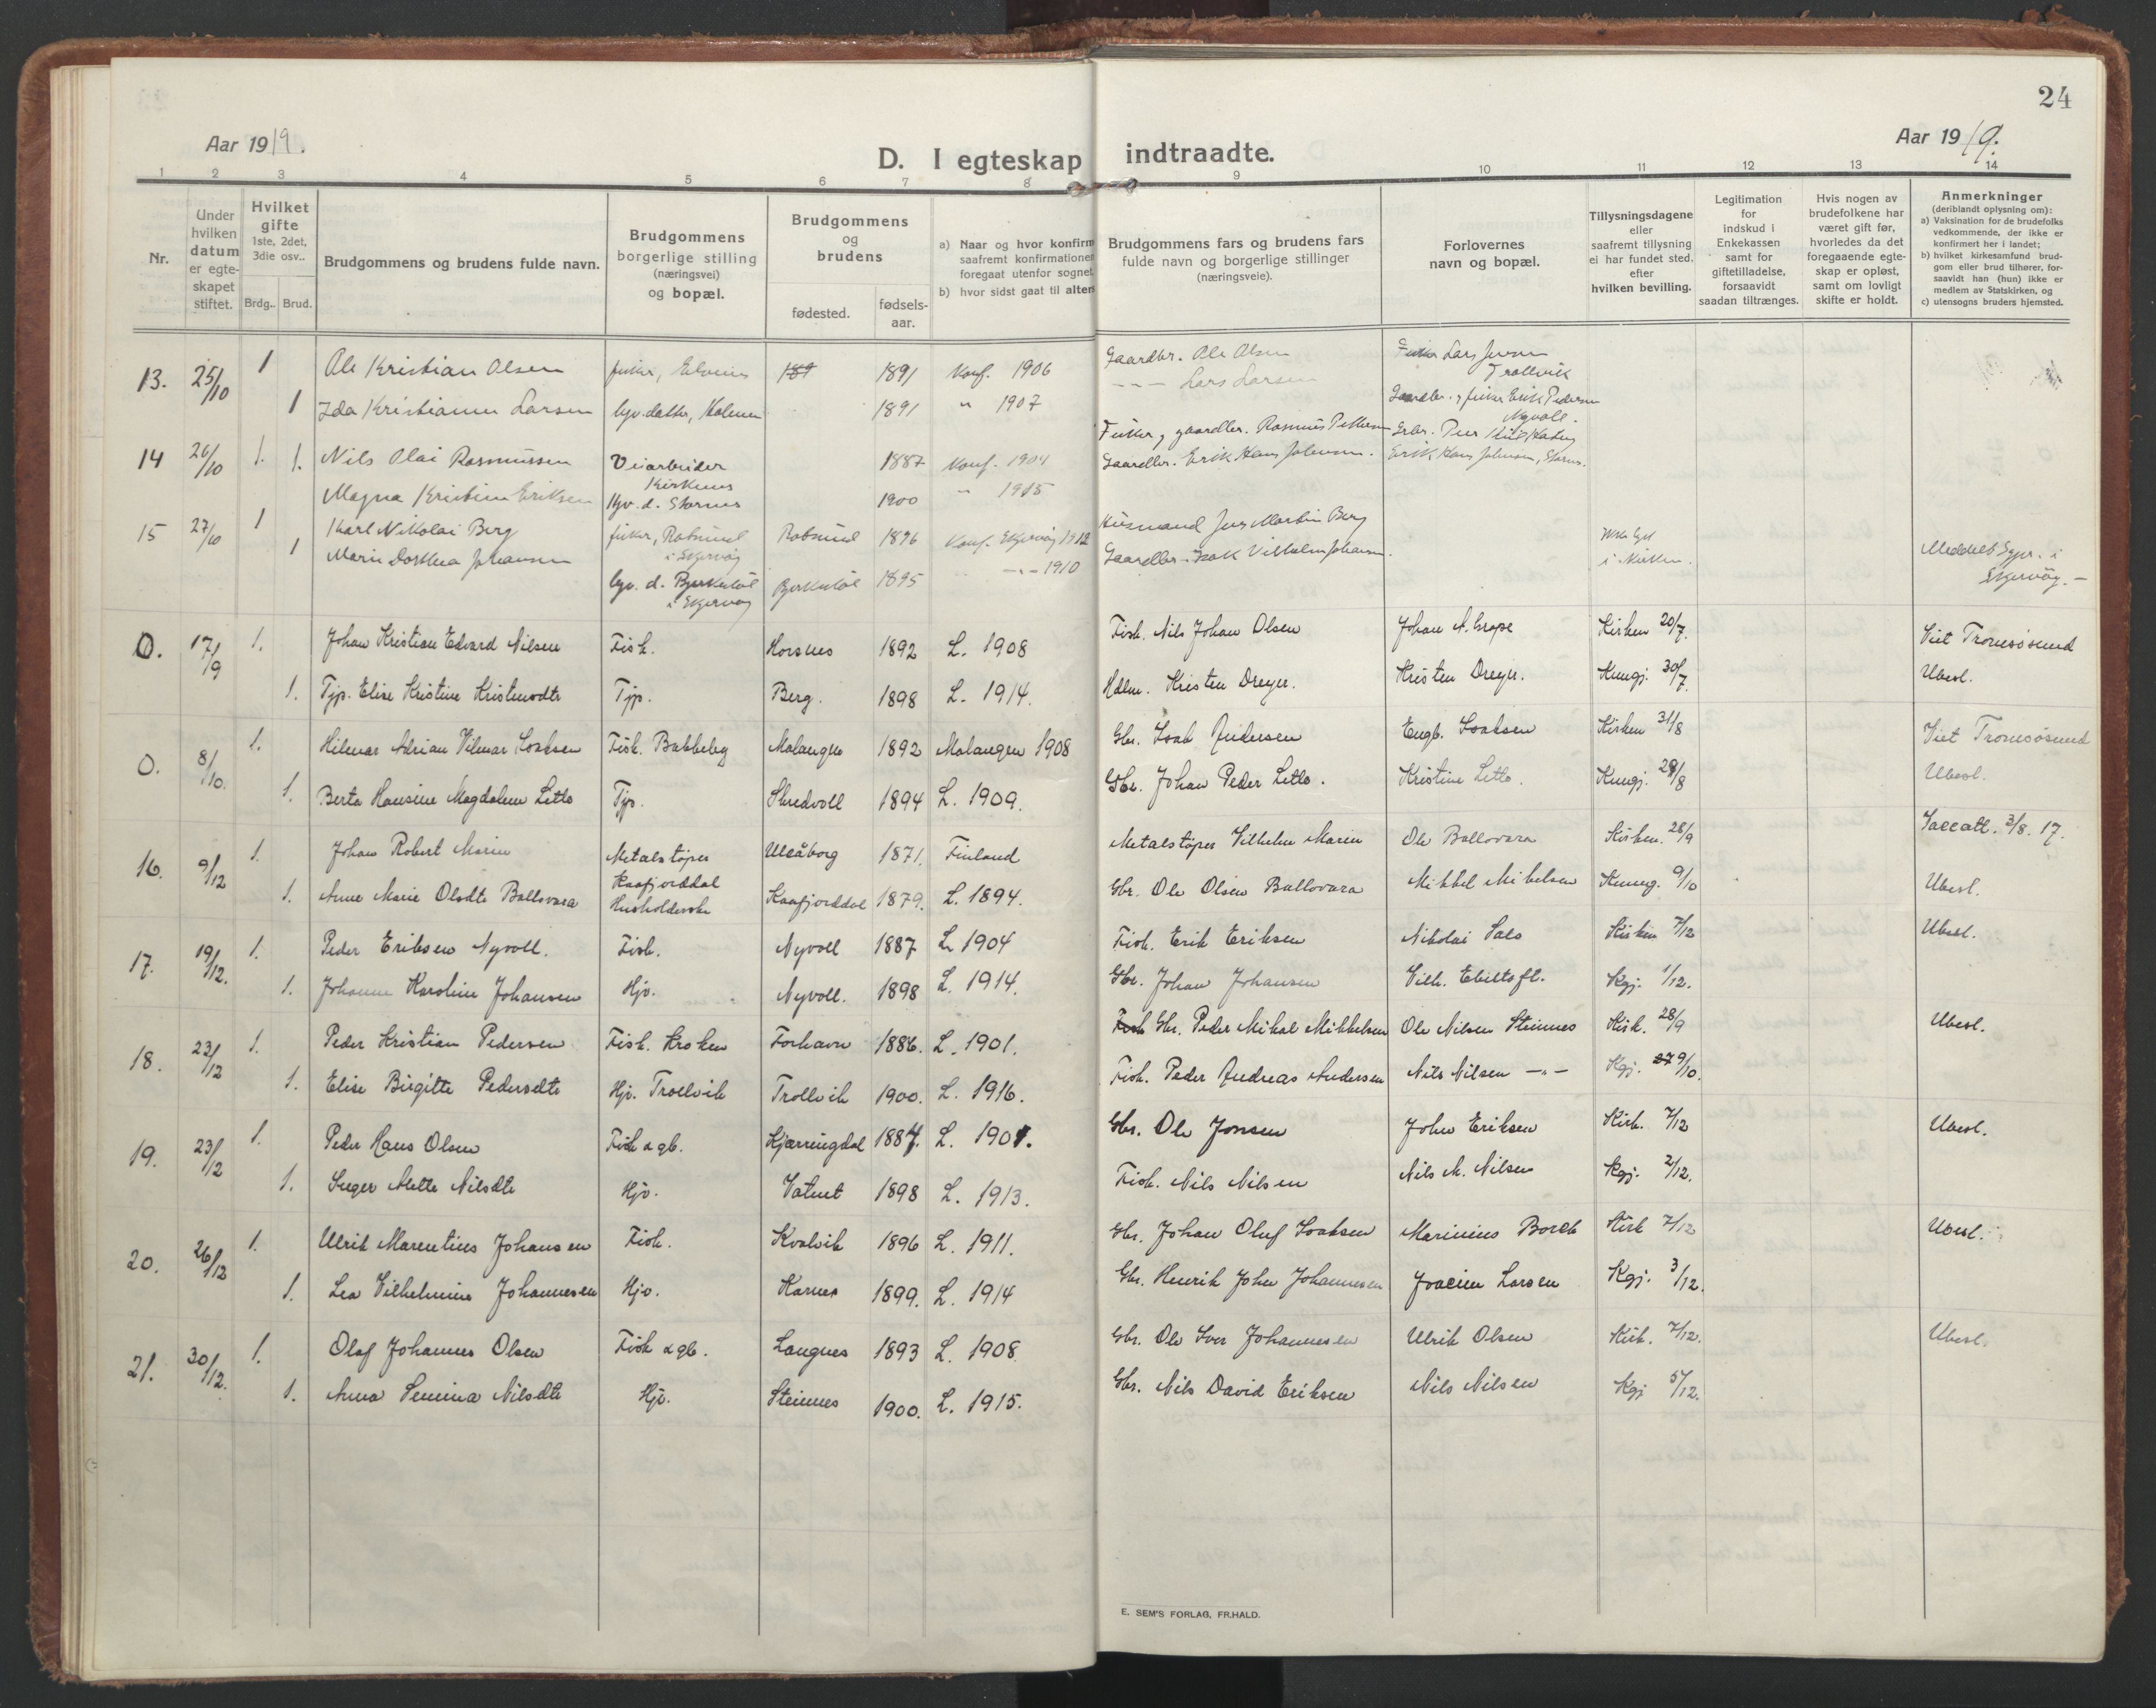 24
Aar 1919.
Aar 1919.
D. I egteskap indtraadte.
1 2 3 4 5 6 7 8 9 10 11 12 13 14
Nr.
Under hvilken datum er egteskapet stiftet.
Hvilket gifte 1ste, 2det, 3die osv..
Brdg.. Brud.
Brudgommens og brudens fulde navn.
Brudgommens borgerlige stilling (næringsvei) og bopæl.
Brudgommens og brudens
fødested.
fødselsaar.
a) Naar og hvor konfirm
saafremt konfirmationen
foregaat utenfor sognet
b) hvor sidst gaat til alters
Brudgommens fars og brudens fars fulde navn og borgerlige stillinger (næringsveie).
Forlovernes navn og bopæl.
Tillysningsdagene eller saafremt tillysning ei har fundet sted. efter hvilken bevilling.
Legitimation for indskud i Enkekassen samt for giftetilladelse, forsaavidt saadan tiltrænges.
Hvis nogen av brudefolkene har været gift før, hvorledes da det foregaaende egteskap er opløst, samt om lovligt skifte er holdt.
Anmerkninger
(deriblandt oplysning om):
a) Vaksination for de brudefolks vedkommende, der ikke er konfirmert her i landet;
b) hvilket kirkesamfund brudgom eller brud tilhører, forsaavidt han (hun) ikke er medlem av Statskirken, og
c) utensogns bruders hjemsted.
13. 25/10 1 Ole Kristian Olsen fisker, 1891 Konf. 1906 Gaardbr. Ole Olsen Fisker Lars Jensen Trollvik
1 Ida Kristianna Larsen gv. datter, Holmen 1891 " 1907 - - - Lars Larsen Gaardbr. & fisker Erik Pedersen Nyvoll.
14 26/10 1. 1. Nils Olai Rasmussen Veiarbeider Kirkenes 1887 Konf. 1904 Fisker & gaardbr. Rasmus Pettersen
Magna Kristine Eriksen gv. d. Stornes 1900 " 1915 Gaardbr. Erik Hans Johnsen. Erik Hans Johnsen, Stornes.
15 27/10 1 Karl Nikolai Berg fisker, Rotsund i Skjervøy Rotsund 1896 Konf. Skjervøy 1912 Husmand Jens Martin Berg
1 Marie Dorthea Johansen gv. d. Bjerkelid i Skjervøy 1895 -"- 1910 Gaardbr. Isak Vilhelm Johansen. i Kirken. Meddelt Spr. i Skjervøy. -
O. 17/9 1. Johan Kristian Edvard Nilsen Fisk. Horsnes 1892 L. 1908 Fisk. Nils Johan Olsen Johan A. Grape Kirken 20/7. Viet Tromsøsund
1. Tjp. Elise Kristine Kristensdtr Tjp. Berg. 1898 L. 1914. Hdlm. Kristen Dreyer. Kristen Dreyer. Kungj. 30/7. Ubesl.
O. 8/10. 1. Hilmar Adrian Vilmar Isaksen Fisk. Bakkeby Malangen 1892 Malangen 1908 Gbr. Isak Andersen Engb. Isaksen Kirken 31/8 Viet Tromsøsund
1. Berta Hansine Magdalene Letto Tjp. Skredvoll 1894 L. 1909. Gbr. Johan Peder Letto. Kristine Letto. Kungj. 29/8 Ubesl.
16. 9/12 1. Johan Robert Marin Metalstøper Uleåborg 1871. Finland Metalstøper Vilhelm Marin Ole Ballovara Kirken. 28/9 Vaccatt. 3/8. 17.
1. Anne Marie Olsdtr Ballovara Kaafjorddal Husholderske Kaafjorddal 1879. L. 1894. Gbr. Ole Olsen Ballovara Mikkel Mikelsen Kunng. 9/10 Ubesl.
17. 19/12. 1. Peder Eriksen Nyvoll. Fisk. Nyvoll 1887 L 1904 Fisk. Erik Eriksen Nikolai Salo Kirken 7/12 Ubesl.
1. Johanne Karoline Johansen Hjv. Nyvoll. 1898 L. 1914. Gbr. Johan Johansen Vilh. Ebeltoft. Kgj. 1/12.
18. 23/12 1. Peder Kristian Pedersen Fisk. Kroken Forhavn 1886. L. 1901. Fisk Gbr. Peder Mikal Mikkelsen Ole Nilsen Steinnes Kirk. 28/9 Ubesl.
1. Elise Birgitte Pedersdtr Hjv. Trollvik Trollvik 1900. L. 1916. Fisk. Peder Andreas Andersen Nils Nilsen -"- Kgj. 27 9/10.
19. 23/12 1. Peder Hans Olsen Fisk & gb. Kjærringdal 1887. L. 1901. Gbr. Ole Jonsen John Eriksen Kirk. 7/12 Ubesl.
1. Inger Mette Nilsdtr Hjv. Vatnet 1898 L. 1913. Fisk. Nils Nilsen Nils M. Nilsen Kgj. 2/12.
20. 26/12 1. Ulrik Marentius Johansen Fisk. Kvalvik 1896 L. 1911. Gbr. Johan Oluf Isaksen Marinius Borch Kirk 7/12 Ubesl.
1. Lea Vilhelmine Johannesen Hjv. Karnes 1899. L. 1914 Gbr. Henrik John Johannesen Joacim Larsen Kgj. 3/12.
21. 30/12. 1. Olaf Johannes Olsen Fisk & gb. Langnes 1893 L. 1908. Gbr. Ole Iver Johannesen Ulrik Olsen Kirk. 7/12. Ubesl.
1. Anna Semina Nilsdtr Hjv. Steinnes 1900. L. 1915. Gbr. Nils David Eriksen Nils Nilsen Kgj 5/12.
E. SEM'S FORLAG, FR.HALD.